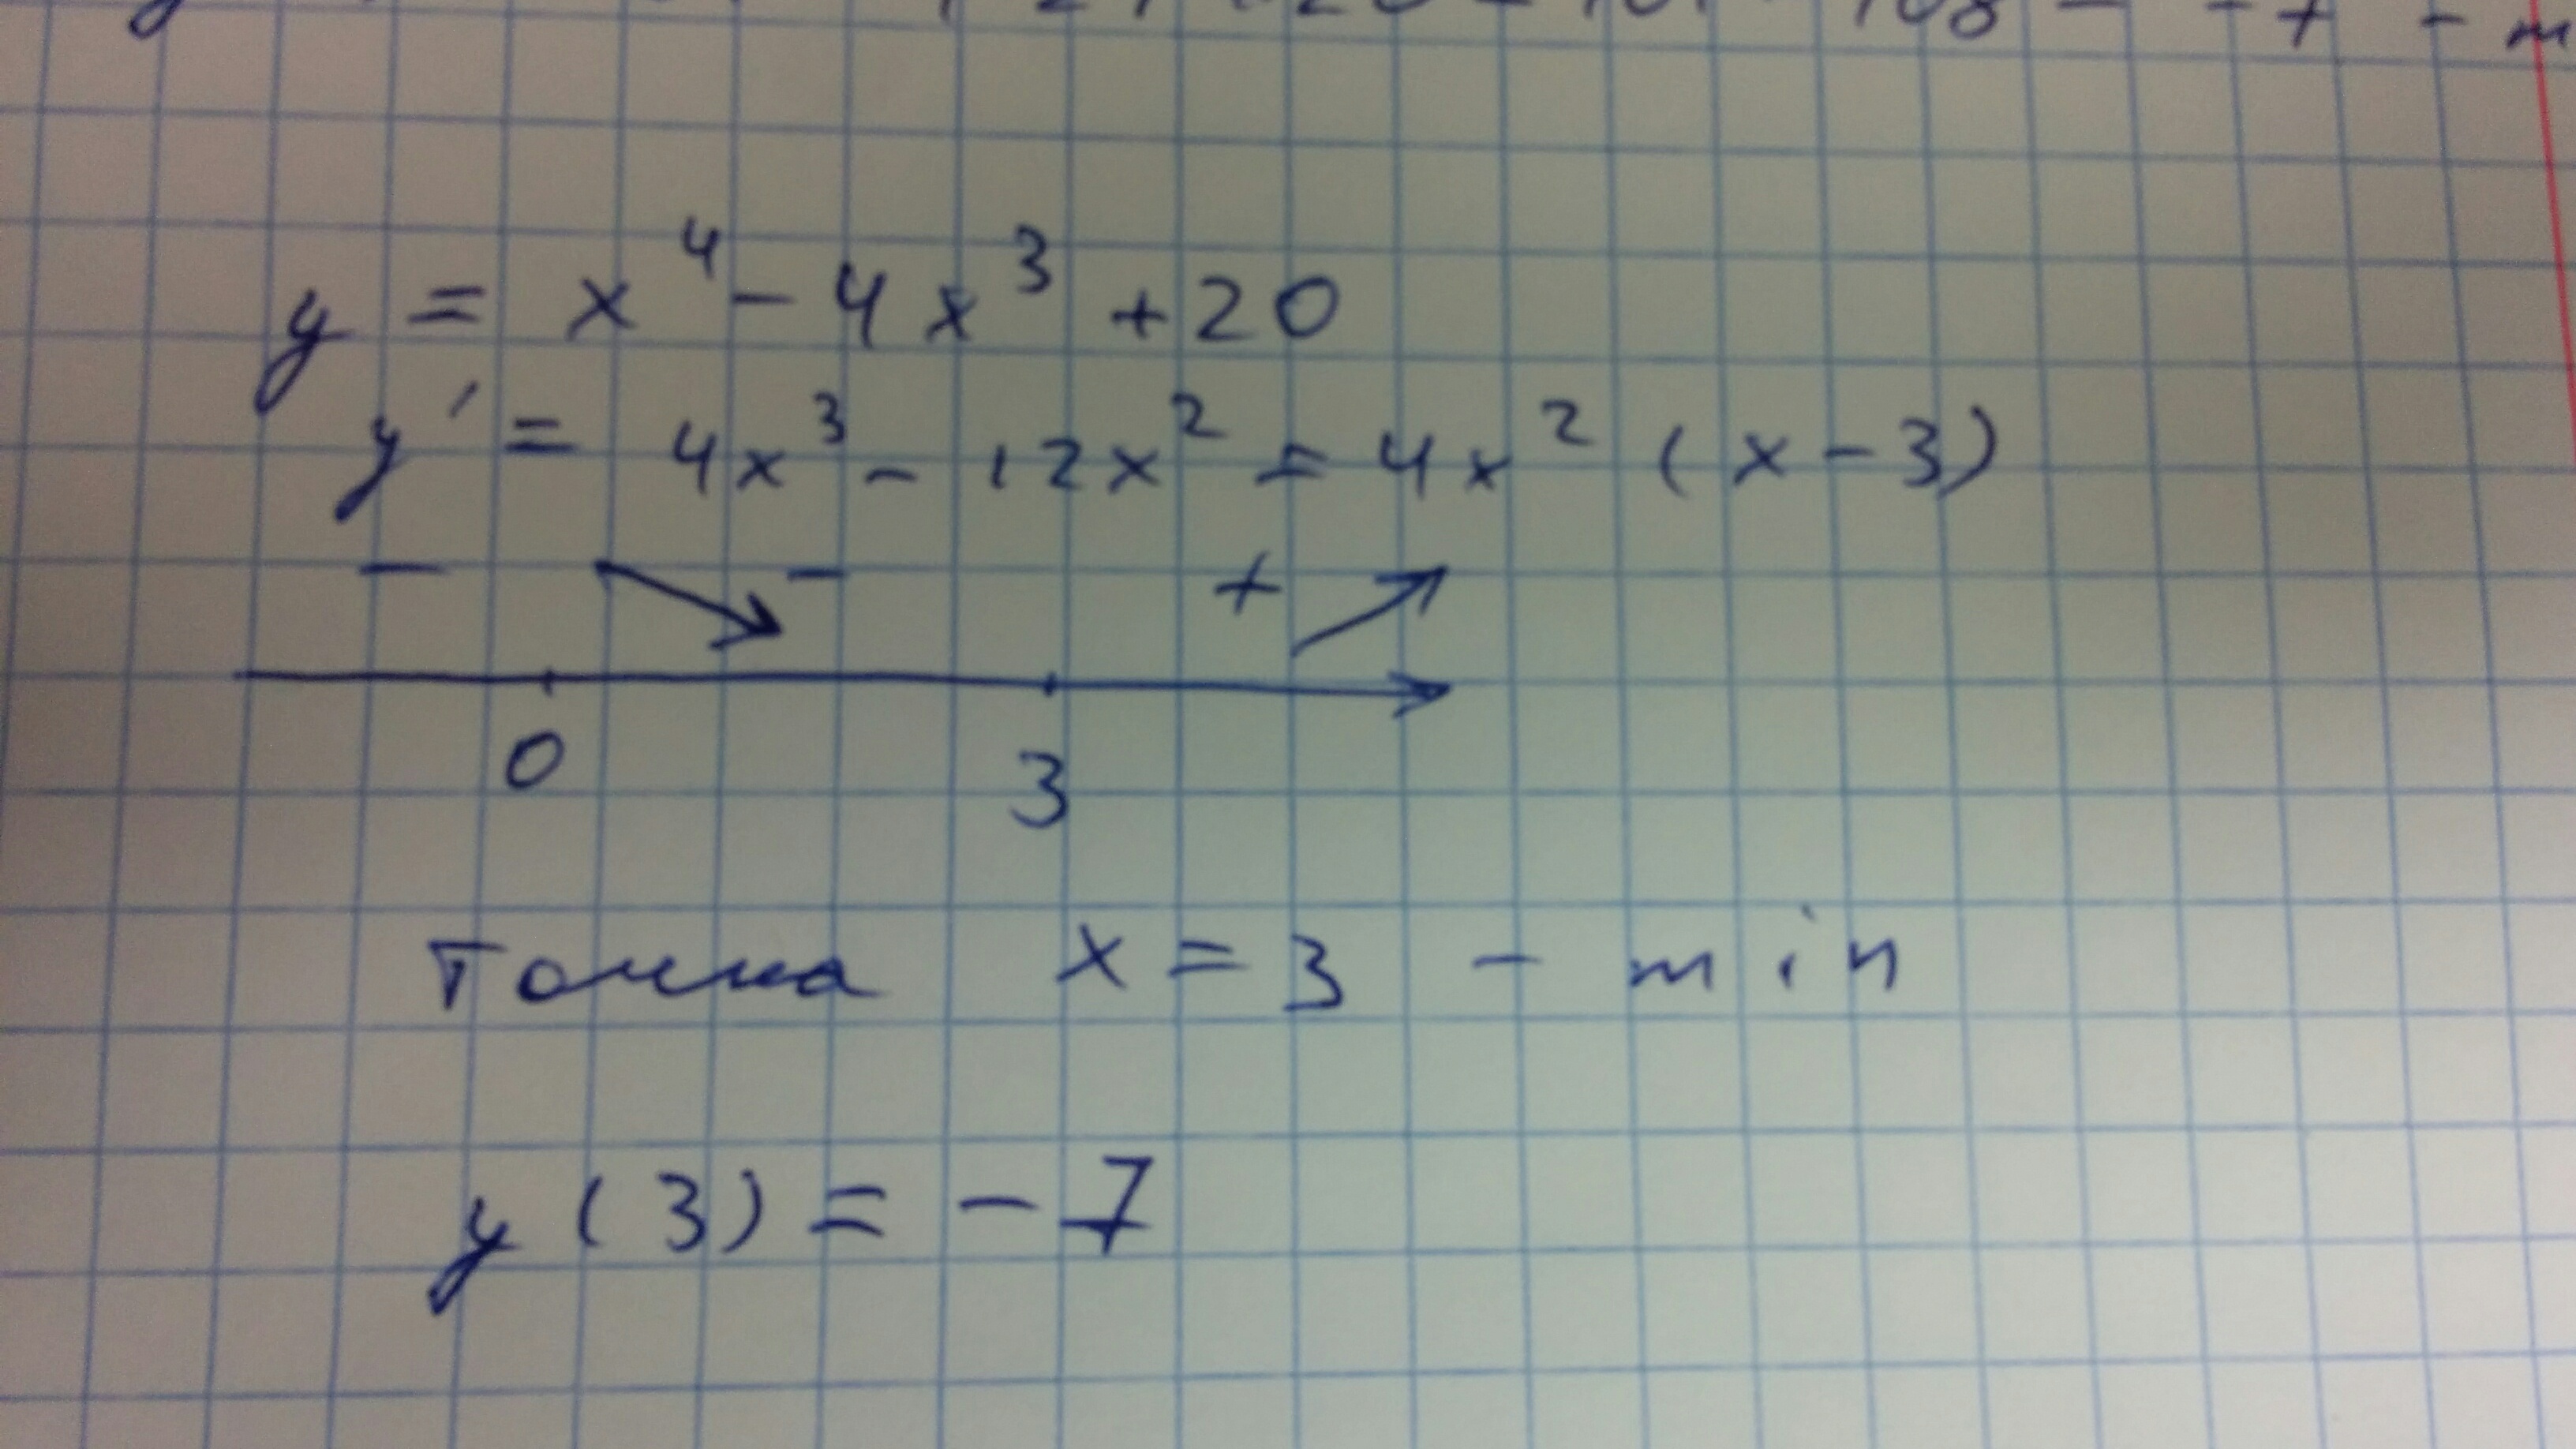 y = x⁴ - 4x³ + 20
y' = 4x³ - 12x² = 4x² (x - 3)
- - +
0 3
Точка x = 3 - min
y (3) = - 7